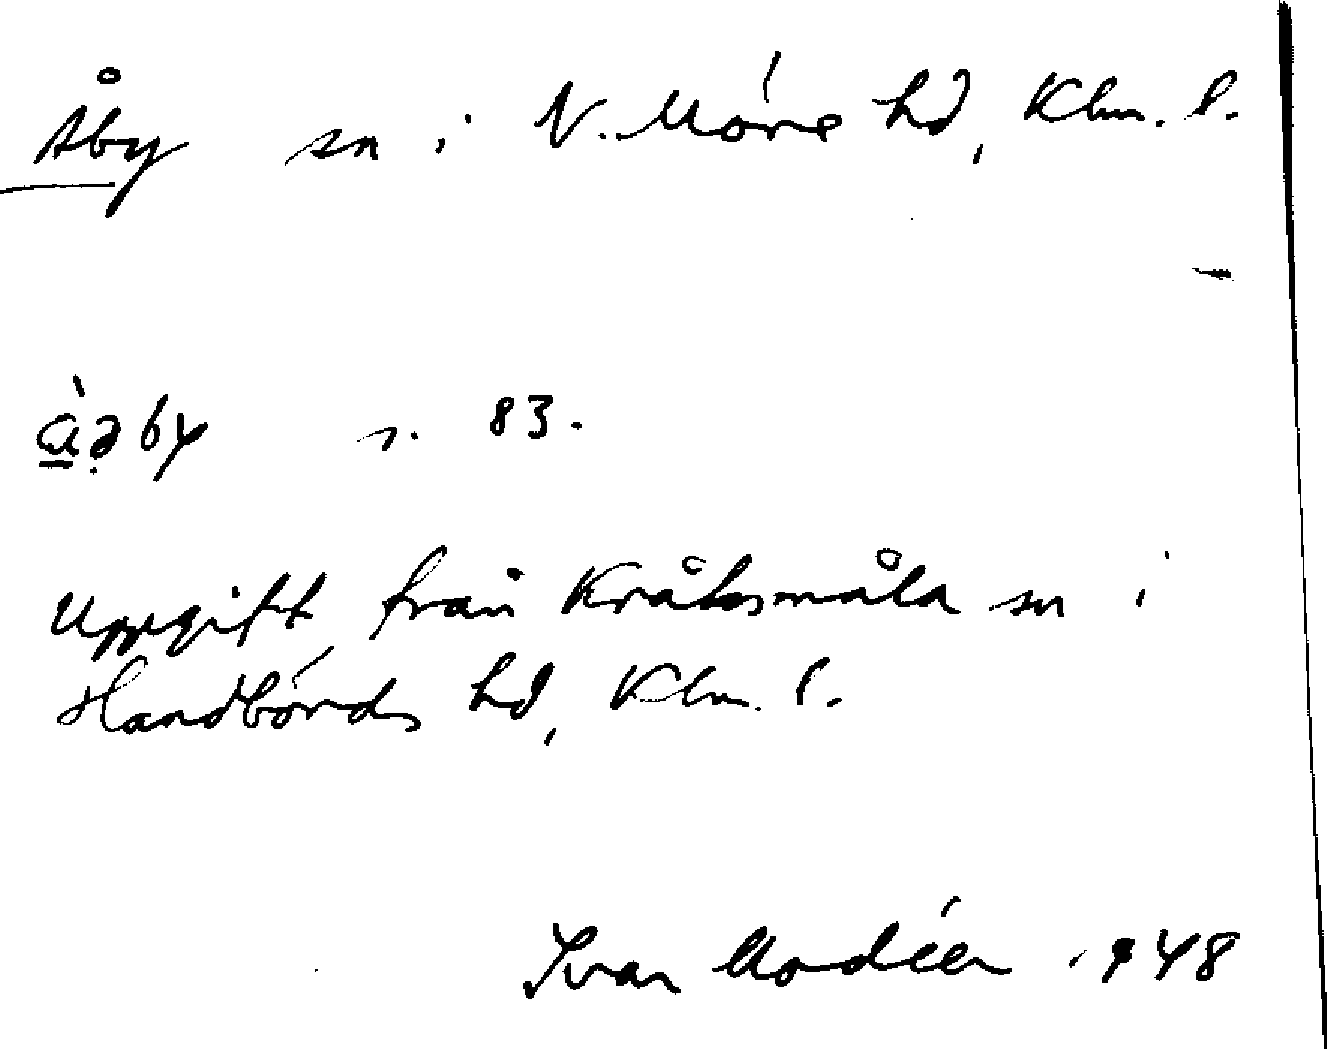 Åby sn i N. Möre hd, Klm. l.
s. 83.
Uppgift från Kråksmåla sn i
Handbörds hd, Klm. l.
Ivar Modéer 1948